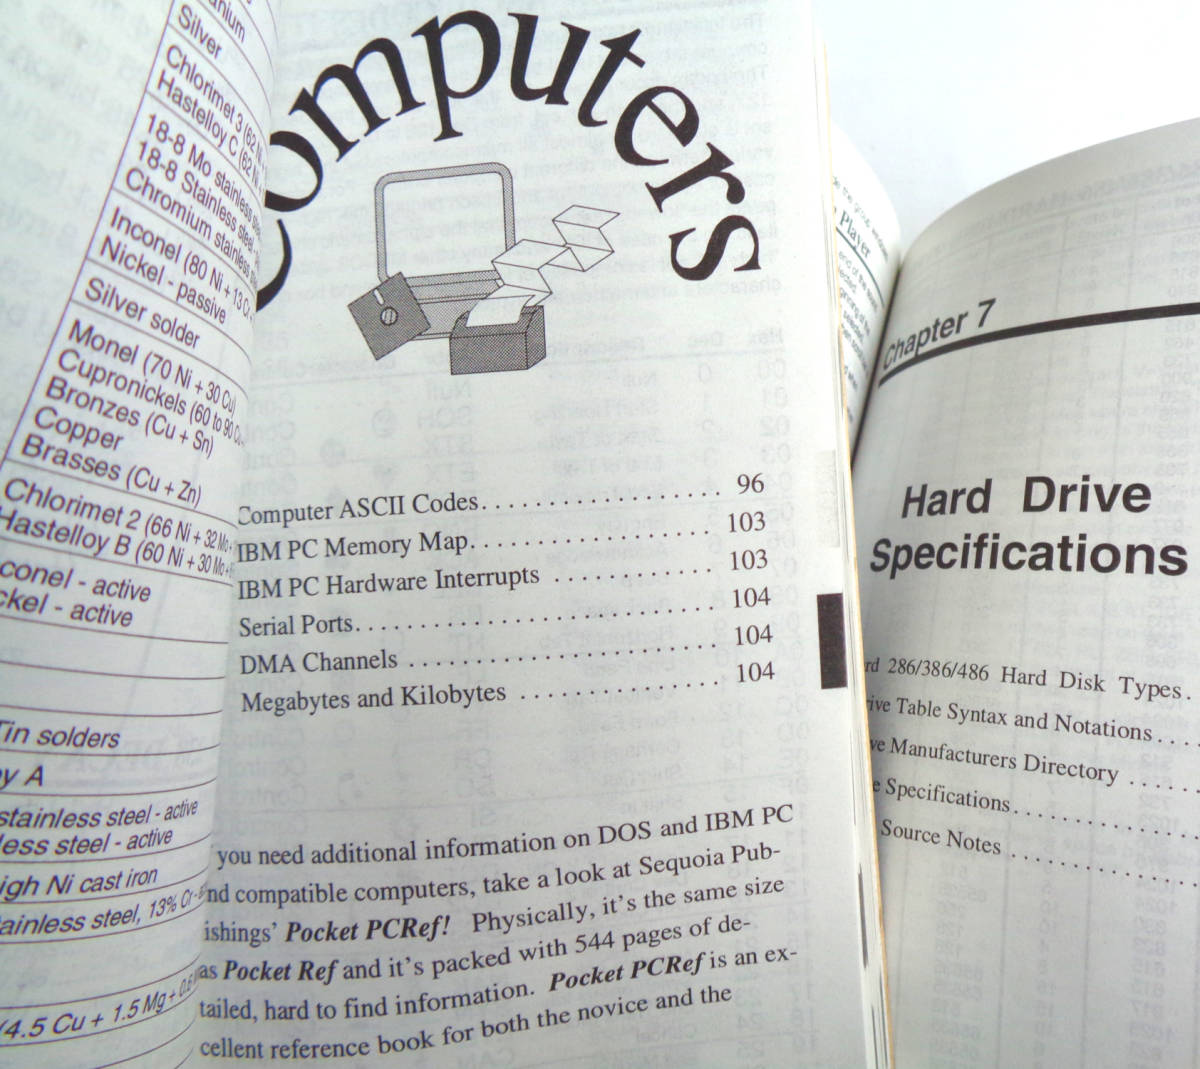 Silver
Chlorimet 3 (62 Ni
Hastelloy C (62 Ni
18-8 Mo stainless steel
18-8 Stainless steel
Chromium stainless steel
Inconel (80 Ni + 13 Cr
Nickel - passive
Silver solder
Monel (70 Ni + 30 Cu)
Cupronickels (60 to 90 Cu
Bronzes (Cu + Sn)
Copper
Brasses (Cu + Zn)
Chlorimet 2 (66 Ni + 32 Mo
Hastelloy B (60 Ni + 30 Mo
conel - active
ckel - active
Tin solders
y A
stainless steel - active
less steel - active
igh Ni cast iron
tainless steel, 13% Cr
4.5 Cu + 1.5 Mg + 0.6
Computers
Computer ASCII Codes. . . . . . . . . . . . . . . . . . . 96
IBM PC Memory Map. . . . . . . . . . . . . . . . . . . 103
IBM PC Hardware Interrupts . . . . . . . . . . . . 103
Serial Ports. . . . . . . . . . . . . . . . . . . . . . . . . . . 104
DMA Channels . . . . . . . . . . . . . . . . . . . . . . . 104
Megabytes and Kilobytes . . . . . . . . . . . . . . . 104
you need additional information on DOS and IBM PC
nd compatible computers, take a look at Sequoia Pub-
ishings' Pocket PCRef! Physically, it's the same size
as Pocket Ref and it's packed with 544 pages of de-
tailed, hard to find information. Pocket PCRef is an ex-
cellent reference book for both the novice and the
Player
Chapter 7
Hard Drive
Specifications
rd 286/386/486 Hard Disk Types. .
rive Table Syntax and Notations . . . .
ve Manufacturers Directory . . . . . .
e Specifications. . . . . . . . . . . . . .
Source Notes . . . . . . . . . . . . .